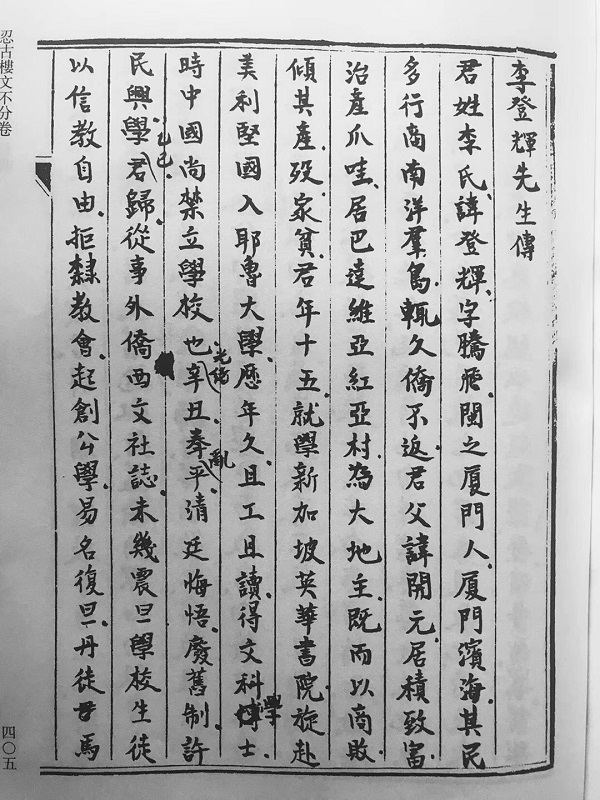 李登輝先生傳
君姓李氏諱登輝字騰飛閩之厦門人厦門濱海其民
多行商南洋羣島輒久僑不返君父諱開元居積致富
治產爪哇居巴達維亞紅亞村為大地主既而以商敗
傾其產歿家貧君年十五就學新加坡英華書院旋赴
美利堅國入耶魯大學歷年久且工且讀得文科學士
時中國尚禁立學校也光緒辛丑拳亂平清廷悔悟廢舊制許
民興學乙巳君歸從事外僑西文社誌未幾震旦學校生徒
以信教自由拒隸教會起創公學易名復旦丹徒馬
忍古樓文不分卷
四〇五